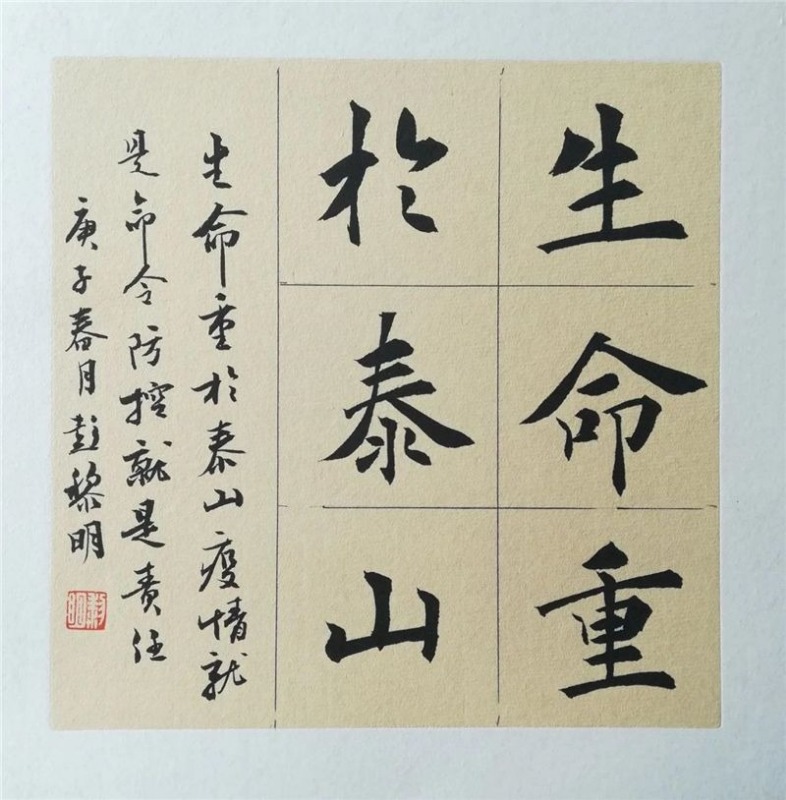 生命重
於泰山
生命重於泰山疫情就
是命令防控就是责任
庚子春月彭黎明
黎明